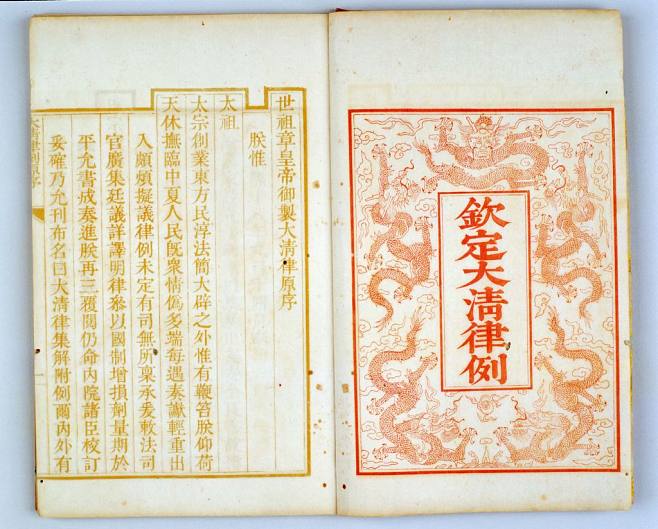 欽定大清律例
世祖章皇帝御製大清律原序
朕惟
太祖
太宗創業東方民淳法簡大辟之外惟有鞭笞朕仰荷
天休撫臨中夏人民旣衆情僞多端每遇奏讞輕重出
入頗煩擬議律例未定有司無所稟承爰敕法司
官廣集廷議詳譯明律參以國制增損劑量期於
平允書成奏進朕再三覆閱仍命內院諸臣校訂
妥確乃允刊布名曰大清律集解附例爾內外有